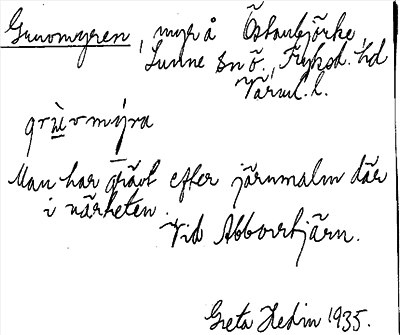 Gruvomyren, myr å Östanbjörke,
Sunne sn ö., Fryksd. hd
Värml. l.
grùvmýra
Man har grävt efter järnmalm där
i närheten.
Vid Abborrtjärn.
Greta Hedin 1935.